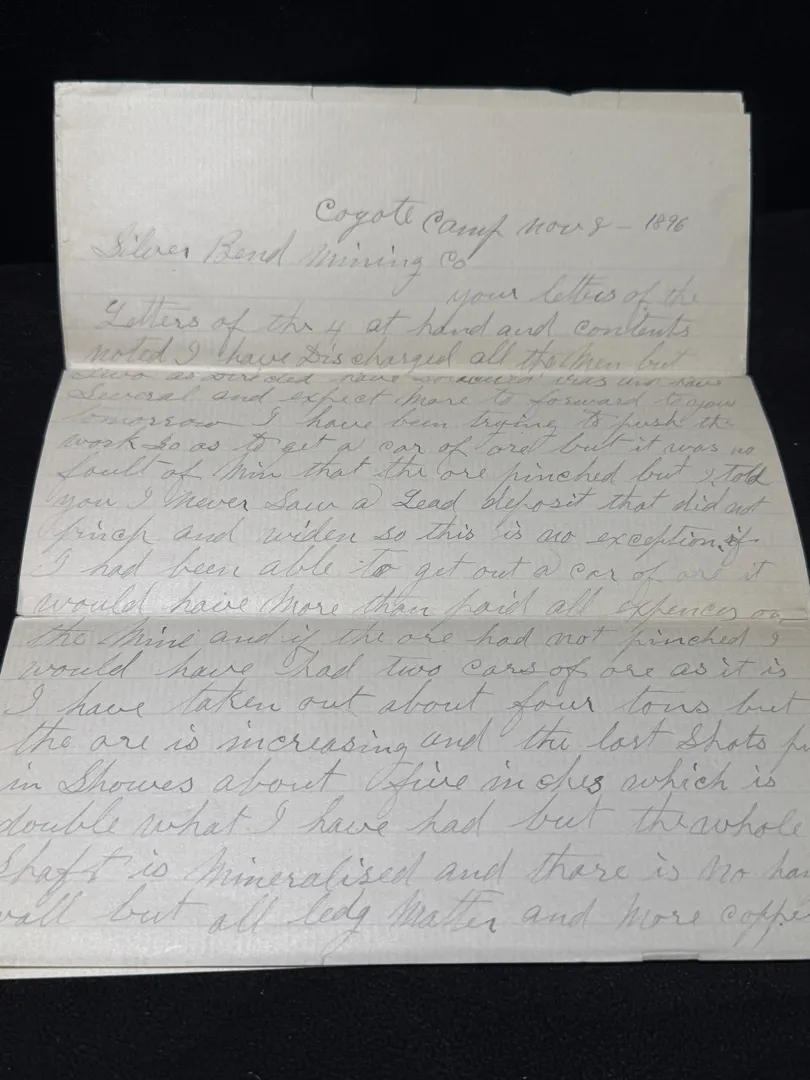 Coyote Camp Nov 8 - 1896
Silver Bend Mining Co
your letters of the
Letters of the 4 at hand and contents
noted I have Discharged all the Men but
two as Directed have
Several and expect More to forward to you
tomorrow I have been trying to push the
work so as to get a car of ore but it was no
fault of Min that the ore pinched but I told
you I Never Saw a Lead deposit that did not
pinch and widen so this is no exception if
I had been able to get out a car of ore it
would have More than paid all expences on
the Mine and if the ore had not pinched I
would have had two cars of ore as it is
I have taken out about four tons but
the ore is increasing and the last Shots pu
in Showes about five inches which is
double what I have had but the whole
Shaft is Mineralised and thare is No han
wall but all ledg Matter and More coppe